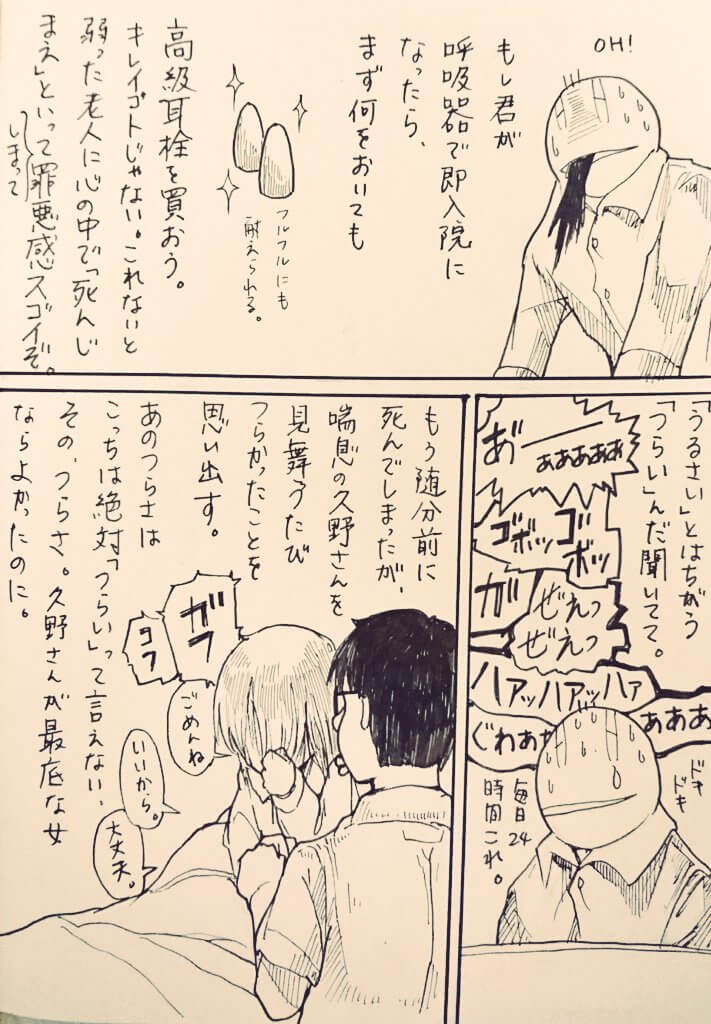 OH!
もし君が
呼吸器で即入院に
なったら、
まず何をおいても
フルフルにも
耐えられる。
高級耳栓を買おう。
キレイゴトじゃない。これないと
弱った老人に心の中で「死んじ
まえ」といって罪悪感スゴイぞ。
しまって
「うるさい」とはちがう
「つらい」んだ聞いてて。
あ゛ーーぁぁぁぁぁ
ゴボッゴボッ
ガ
ぜえっ
ぜえっ
ハアッハアッハァ
ぐわああ
ああああ
ドキ
ドキ
毎日24
時間これ。
もう随分前に
死んでしまったが、
喘息の久野さんを
見舞うたび
つらかったことを
思い出す。
ガフ
コフ
ごめんね
いいから。
大丈夫。
あのつらさは
こっちは絶対「つらい」って言えない、
その、つらさ。久野さんが最底な女
ならよかったのに。